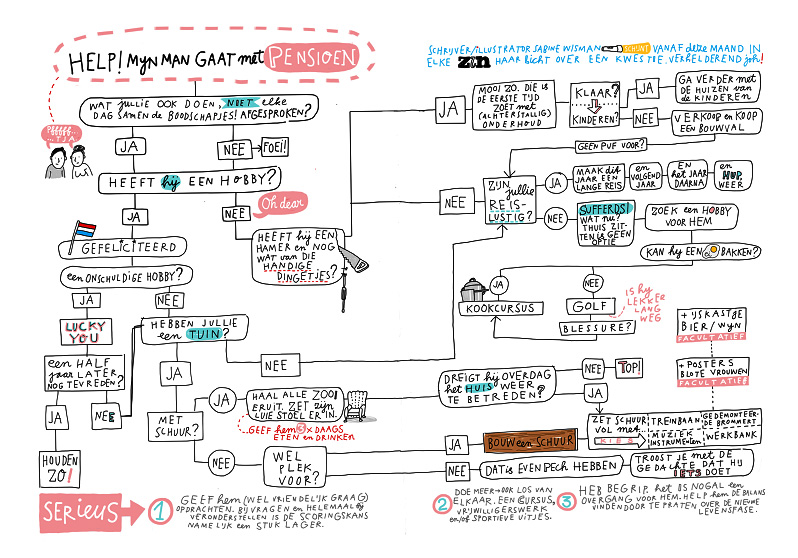 HELP! MYN MAN GAAT met PENSIOEN
SCHRIJVER/ILLUSTRATOR SABINE WISMAN SCHIJNT VANAF deze MAAND IN
ELKE ZIN HAAR licht OVER EEN KWESTIE. VERHELDEREND joh!
WAT JULLIE OOK DOEN, NIET elke
DAG SAMEN de BOODSCHAPJES! AFGESPROKEN?
PFFFFF...
...TJA
JA
NEE
FOEI!
HEEFT hij EEN HOBBY?
JA
NEE
Oh dear
GEFELICITEERD
een ONSCHULDIGE HOBBY?
JA
NEE
LUCKY
YOU
een HALF
jaar LATER,
NOG TEVREDEN?
JA
NEE
HOUDEN
ZO!
HEBBEN JULLIE
een TUIN?
JA
NEE
MET
SCHUUR?
JA
HAAL ALLE ZOOI
ERUIT. ZET zijn
LUIE STOEL ER IN.
GEEF hem 5 x DAAGS
ETEN en DRINKEN
NEE
WEL
PLEK
VOOR?
HEEFT hij EEN
HAMER en NOG
WAT van DIE
HANDIGE
DINGETJES?
JA
MOOI ZO. DIE IS
de EERSTE TIJD
ZOET MET
(ACHTERSTALLIG)
ONDERHOUD
KLAAR?
KINDEREN?
JA
GA VERDER met
DE HUIZEN van
de KINDEREN
NEE
VERKOOP en KOOP
EEN BOUWVAL
GEEN PUF VOOR?
NEE
ZIJN
jullie
REIS-
LUSTIG?
JA
MAAK dit
JAAR EEN
LANGE REIS
en
VOLGEND
JAAR
EN
het JAAR
DAARNA
en
HUP
WEER
NEE
SUFFERDS!
WAT NU?
THUIS ZIT-
TEN is GEEN
OPTIE
ZOEK een HOBBY
VOOR HEM
KAN hij EEN BAKKEN?
JA
KOOKCURSUS
NEE
GOLF
BLESSURE?
IS hij
LEKKER
LANG
WEG
DREIGT hij OVERDAG
het HUIS WEER
TE BETREDEN?
NEE
TOP!
JA
+ IJSKASTJE
BIER/WIJN
FACULTATIEF
+ POSTERS
BLOTE VROUWEN
FACULTATIEF
JA
BOUW een SCHUUR
ZET SCHUUR
VOL met...
KIES
TREINBAAN
GEDEMONTEER-
DE BROMMERT
MUZIEK
INSTRUMENTEN
WERKBANK
NEE
DAT is EVEN PECH HEBBEN
TROOST je MET de
GEDACHTE DAT HIJ
IETS DOET
SERIEUS
1 GEEF hem (WEL VRIENDELIJK GRAAG)
OPDRACHTEN. BIJ VRAGEN en HELEMAAL bij
VERONDERSTELLEN IS de SCORINGSKANS
NAMELIJK een STUK LAGER.
2 DOE MEER OOK LOS VAN
ELKAAR. EEN CURSUS,
VRIJWILLIGERSWERK
en/of SPORTIEVE UITJES.
3 HEB BEGRIP. het IS NOGAL een
OVERGANG voor HEM. HELP hem DE BALANS
VINDEN DOOR TE PRATEN OVER DE NIEUWE
LEVENSFASE.